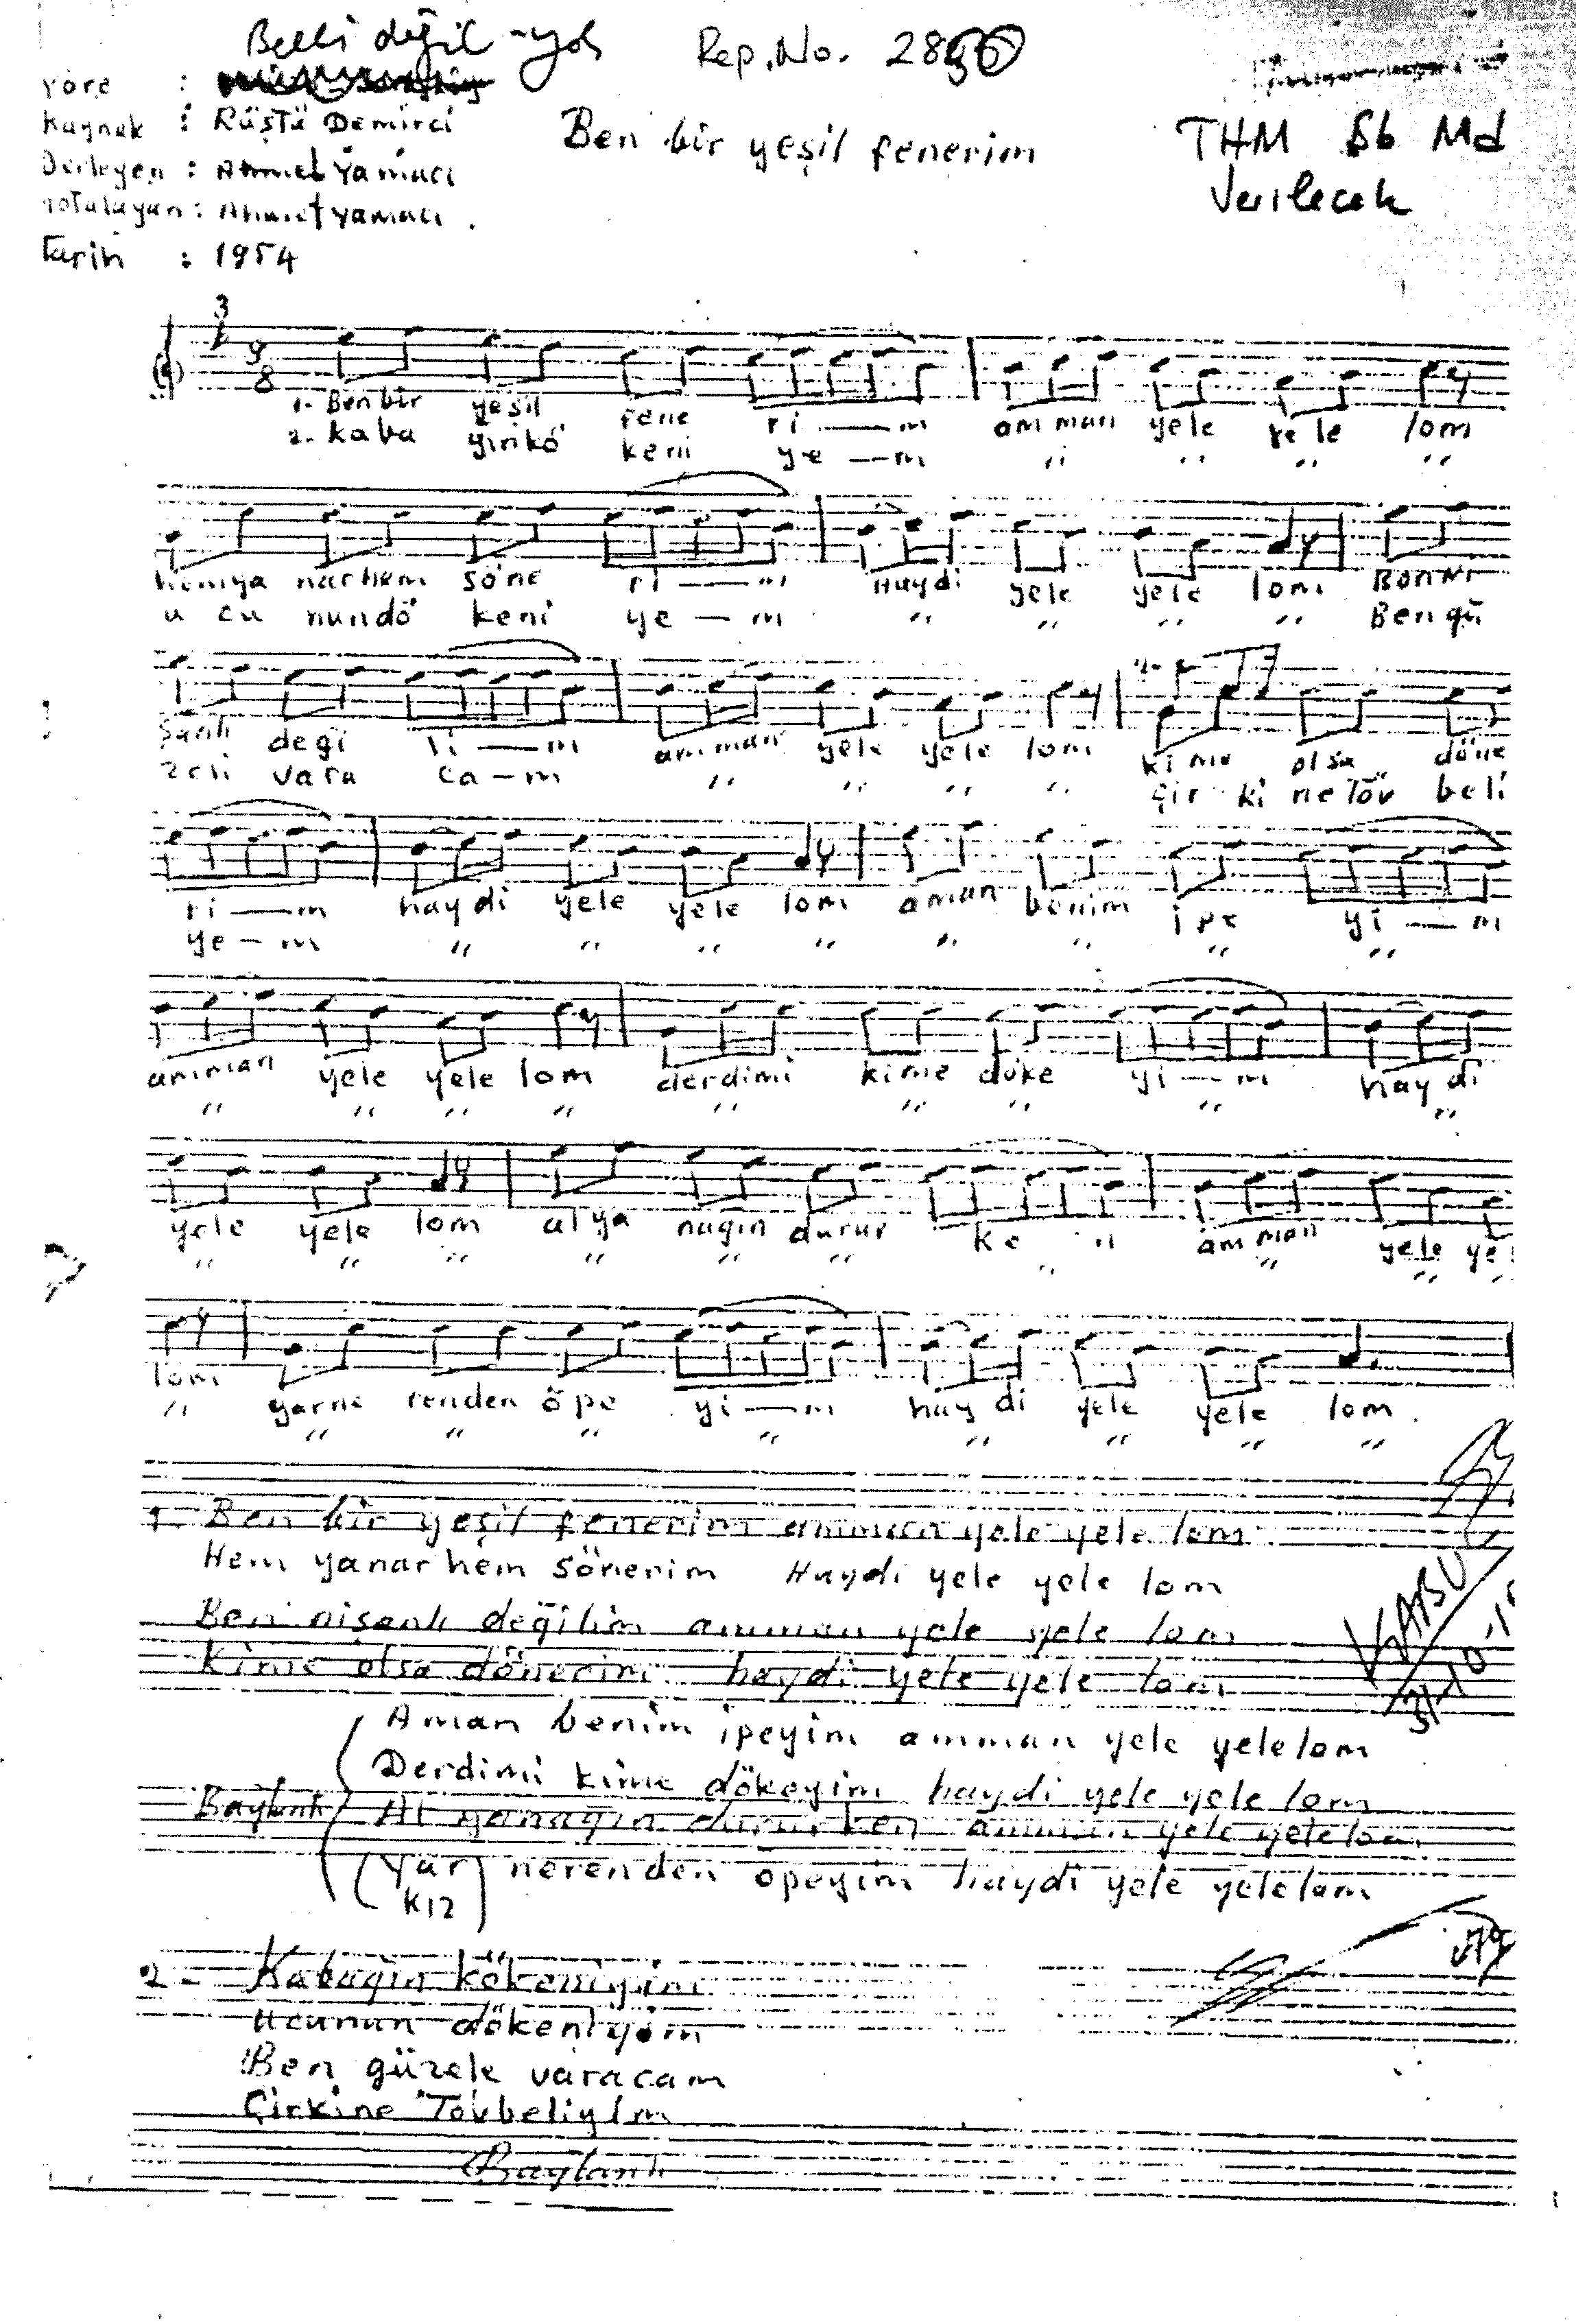 Belli değil - yok
Rep. No. 28
yöre :
Kaynak : Rüştü Demirci
Derleyen : Ahmet Yamacı
notalayan : Ahmet Yamacı .
Tarih : 1954
Ben bir yeşil fenerim
THM Şb Md
Verilecek
3
9
8
1- Ben bir yeşil fene ri — m amman yele yele lom
2- Kaba ğınkö keni ye — m " " " "
hemya narhem söne ri — m Haydi yele yele lom Benni
u cu nundö keni ye — m " " " " Ben gü
şanlı deği li — m amman yele yele lom kime olsa döne
zeli vara ca — m " " " " çir ki netöv beli
ri — m haydi yele yele lom aman benim ipe yi — m
ye — m " " " " " " " "
amman yele yele lom derdimi kime döke yi — m haydi
" " " " " " " " "
yele yele lom alya nağın durur ke n amman yele ye
" " " " " " " " " "
lom yarne renden öpe yi — m haydi yele yele lom .
" " " " " " " " "
1- Ben bir yeşil fenerim amman yele yele lom
Hem yanar hem sönerim Haydi yele yele lom
Ben nişanlı değilim amman yele yele lom
Kime olsa dönerim haydi yele yele lom
KABUL
Aman benim ipeyim amman yele yelelom
Derdimi kime dökeyim haydi yele yele lom
Bağlantı Al yanağın dururken amman yele yelelom
(Yar nerenden öpeyim haydi yele yelelom
Kız)
2- Kabağın kökeniyim
Ucunun dökeniyim
Ben güzele varacam
Çirkine Tövbeliyim
Bağlantı